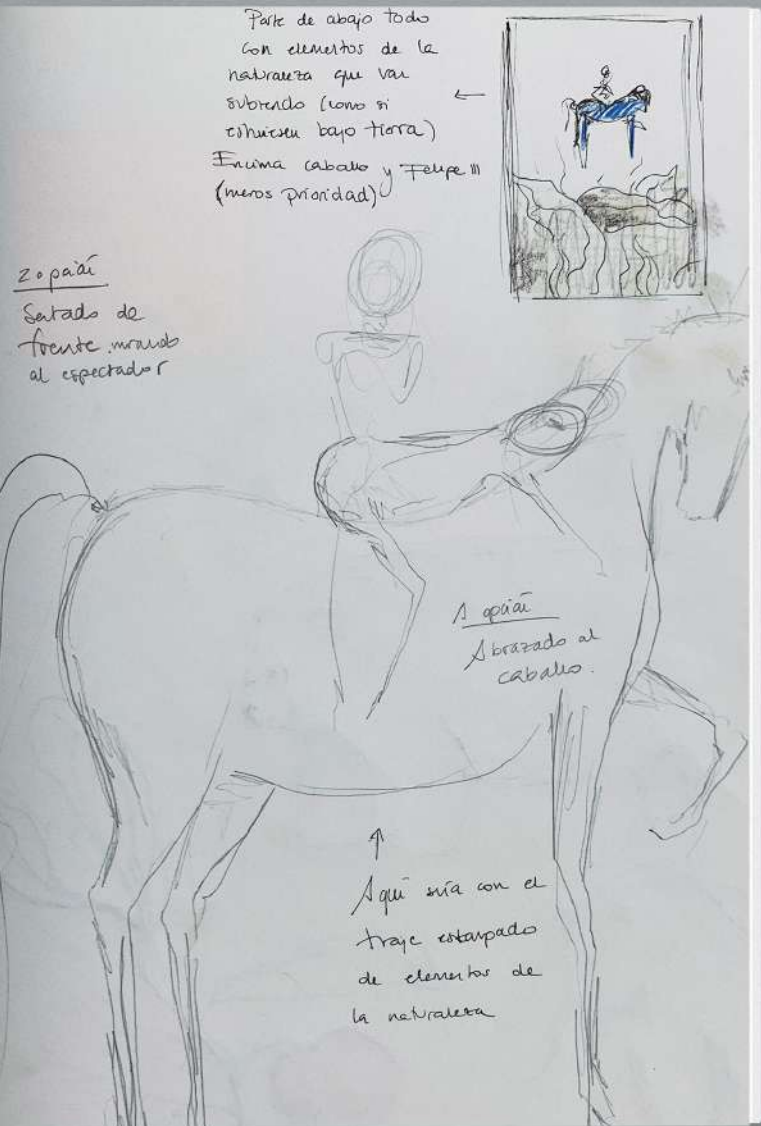 Parte de abajo todo
con elementos de la
naturaleza que van
subiendo (como si
estuviesen bajo tierra)
Encima caballo y Felipe III
(menos prioridad)
2 opción
Sentado de
frente mirando
al espectador
1 opción
Abrazado al
caballo.
Aquí sería con el
traje estampado
de elementos de
la naturaleza